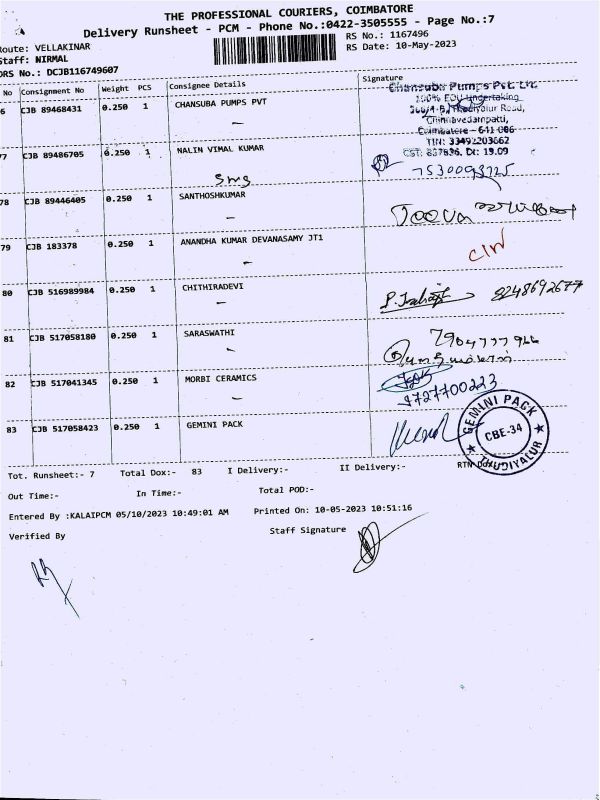 THE PROFESSIONAL COURIERS, COIMBATORE
Delivery Runsheet - PCM - Phone No.:0422-3505555 - Page No.:7
Route: VELLAKINAR
RS No.: 1167496
Staff: NIRMAL
RS Date: 10-May-2023
DRS No.: DCJB116749607
No Consignment No Weight PCS Consignee Details Signature
6 CJB 89468431 0.250 1 CHANSUBA PUMPS PVT
Chansuba Pumps Pvt. Ltd.
100% EOU Undertaking
Thudiyalur Road,
Chinnavedampatti,
Coimbatore - 641 006
77 CJB 89486705 0.250 1 NALIN VIMAL KUMAR
TIN: 33492203662
Dt: 19.09
sms
78 CJB 89446405 0.250 1 SANTHOSHKUMAR
79 CJB 183378 0.250 1 ANANDHA KUMAR DEVANASAMY JT1
80 CJB 516989984 0.250 1 CHITHIRADEVI
8248692677
81 CJB 517058180 0.250 1 SARASWATHI
82 CJB 517041345 0.250 1 MORBI CERAMICS
9727700223
83 CJB 517058423 0.250 1 GEMINI PACK
GEMINI PACK
CBE-34
THUDIYALUR
Tot. Runsheet:- 7 Total Dox:- 83 I Delivery:- II Delivery:- RTN Dox:-
Out Time:- In Time:- Total POD:-
Entered By :KALAIPCM 05/10/2023 10:49:01 AM Printed On: 10-05-2023 10:51:16
Verified By Staff Signature